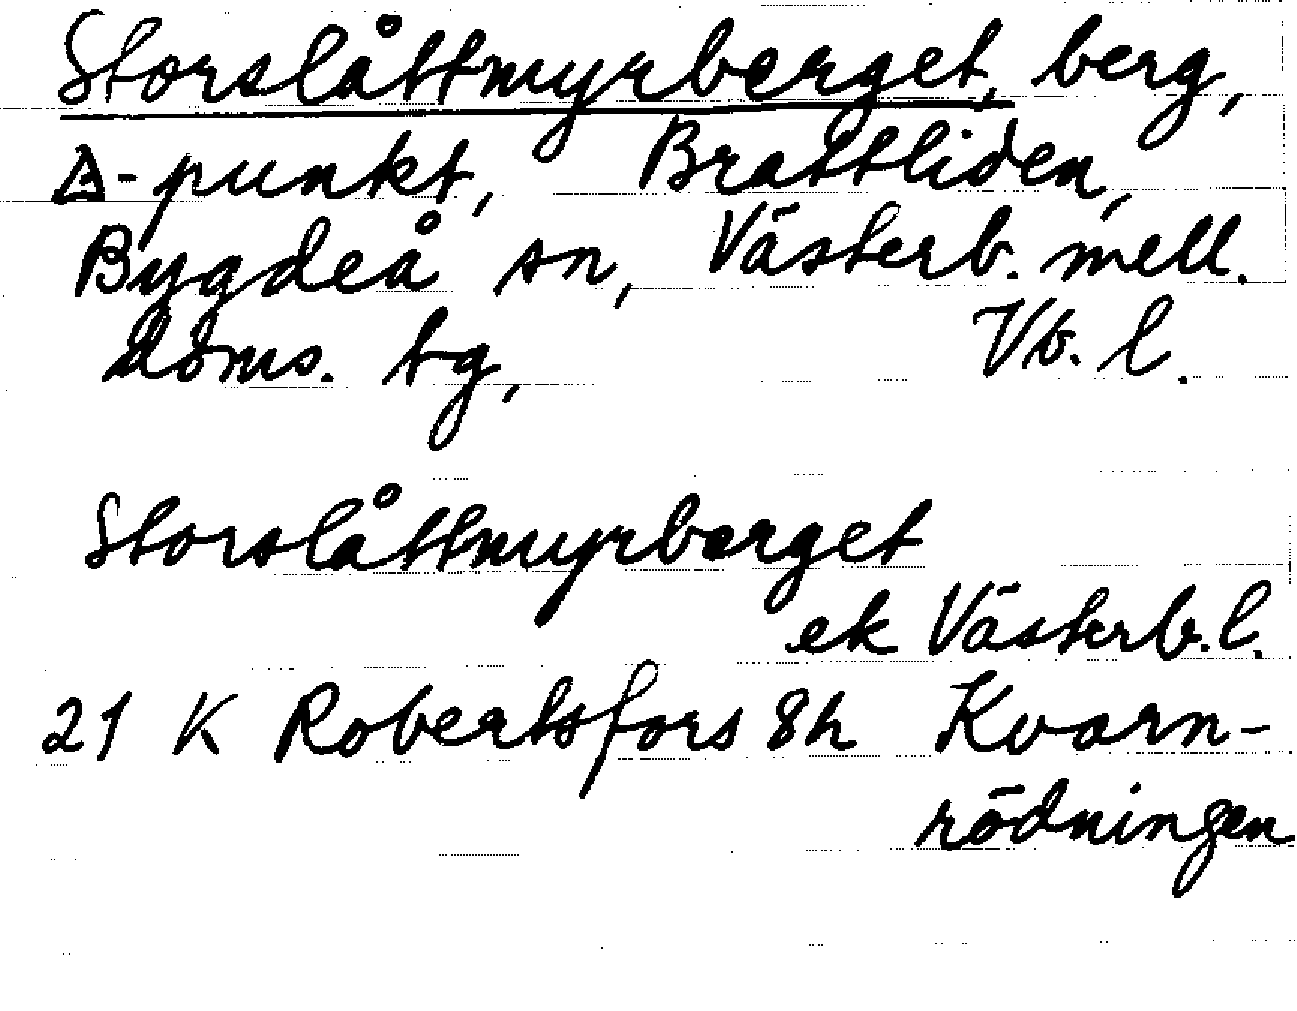 Storslåttmyrberget, berg,
△-punkt, Brattliden,
Bygdeå sn, Västerb. mell.
doms. tg, Vb. l.
Storslåttmyrberget
ek Västerb. l.
21 K Robertsfors 8h Kvarn-
rödningen